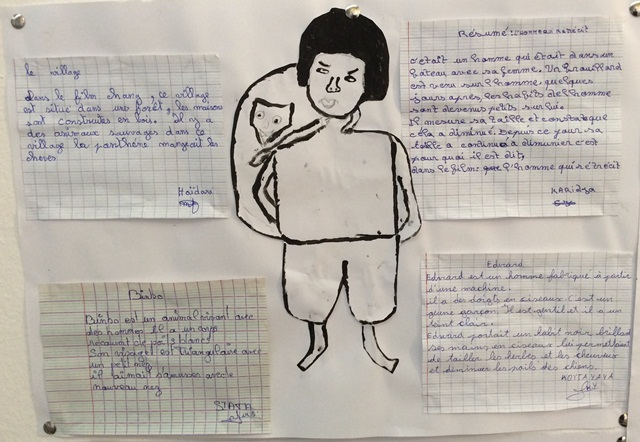 le village
Dans le film chang, ce village
est situé dans une forêt, les maisons
sont construites en bois. Il y a
des animaux sauvages dans le
village la panthère mangeait les
chèvres
Haïdara
Résumé: L'homme rétrécit
c'était un homme qui était dans un
bâteau avec sa femme. Un brouillard
est venu sur l'homme, quelques
jours après les habits de l'homme
sont devenus petits sur lui.
Il mesure sa taille et constate que
cela a diminué. Depuis ce jour sa
taille a continué a diminuer c'est
pour quoi il est dit,
dans le film: l'homme qui rétrécit
KARIDJA
Bimbo
Bimbo est un animal vivant avec
des hommes. Il a un corps
recouvert de poils blancs
Son visage est triangulaire avec
un petit nez
il aimait s'amuser avec le
nouveau nez
Edward
Edward est un homme fabriqué à partir
d'une machine.
il a des doigts en ciseaux. C'est un
jeune garçon. Il est gentil et il a un
teint clair.
Edward portait un habit noir brillant
ses mains en ciseaux lui permettaient
de tailler les herbes et les cheveux
et diminuer les poils des chiens.
KOITA YAYA